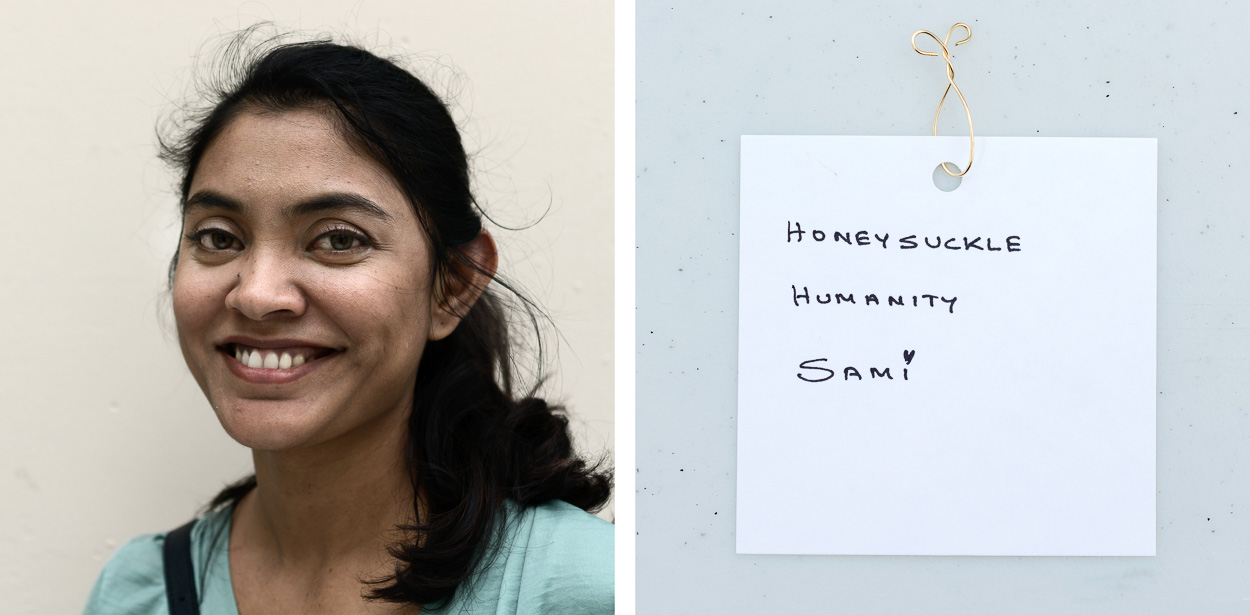 HONEYSUCKLE
HUMANITY
SAMi